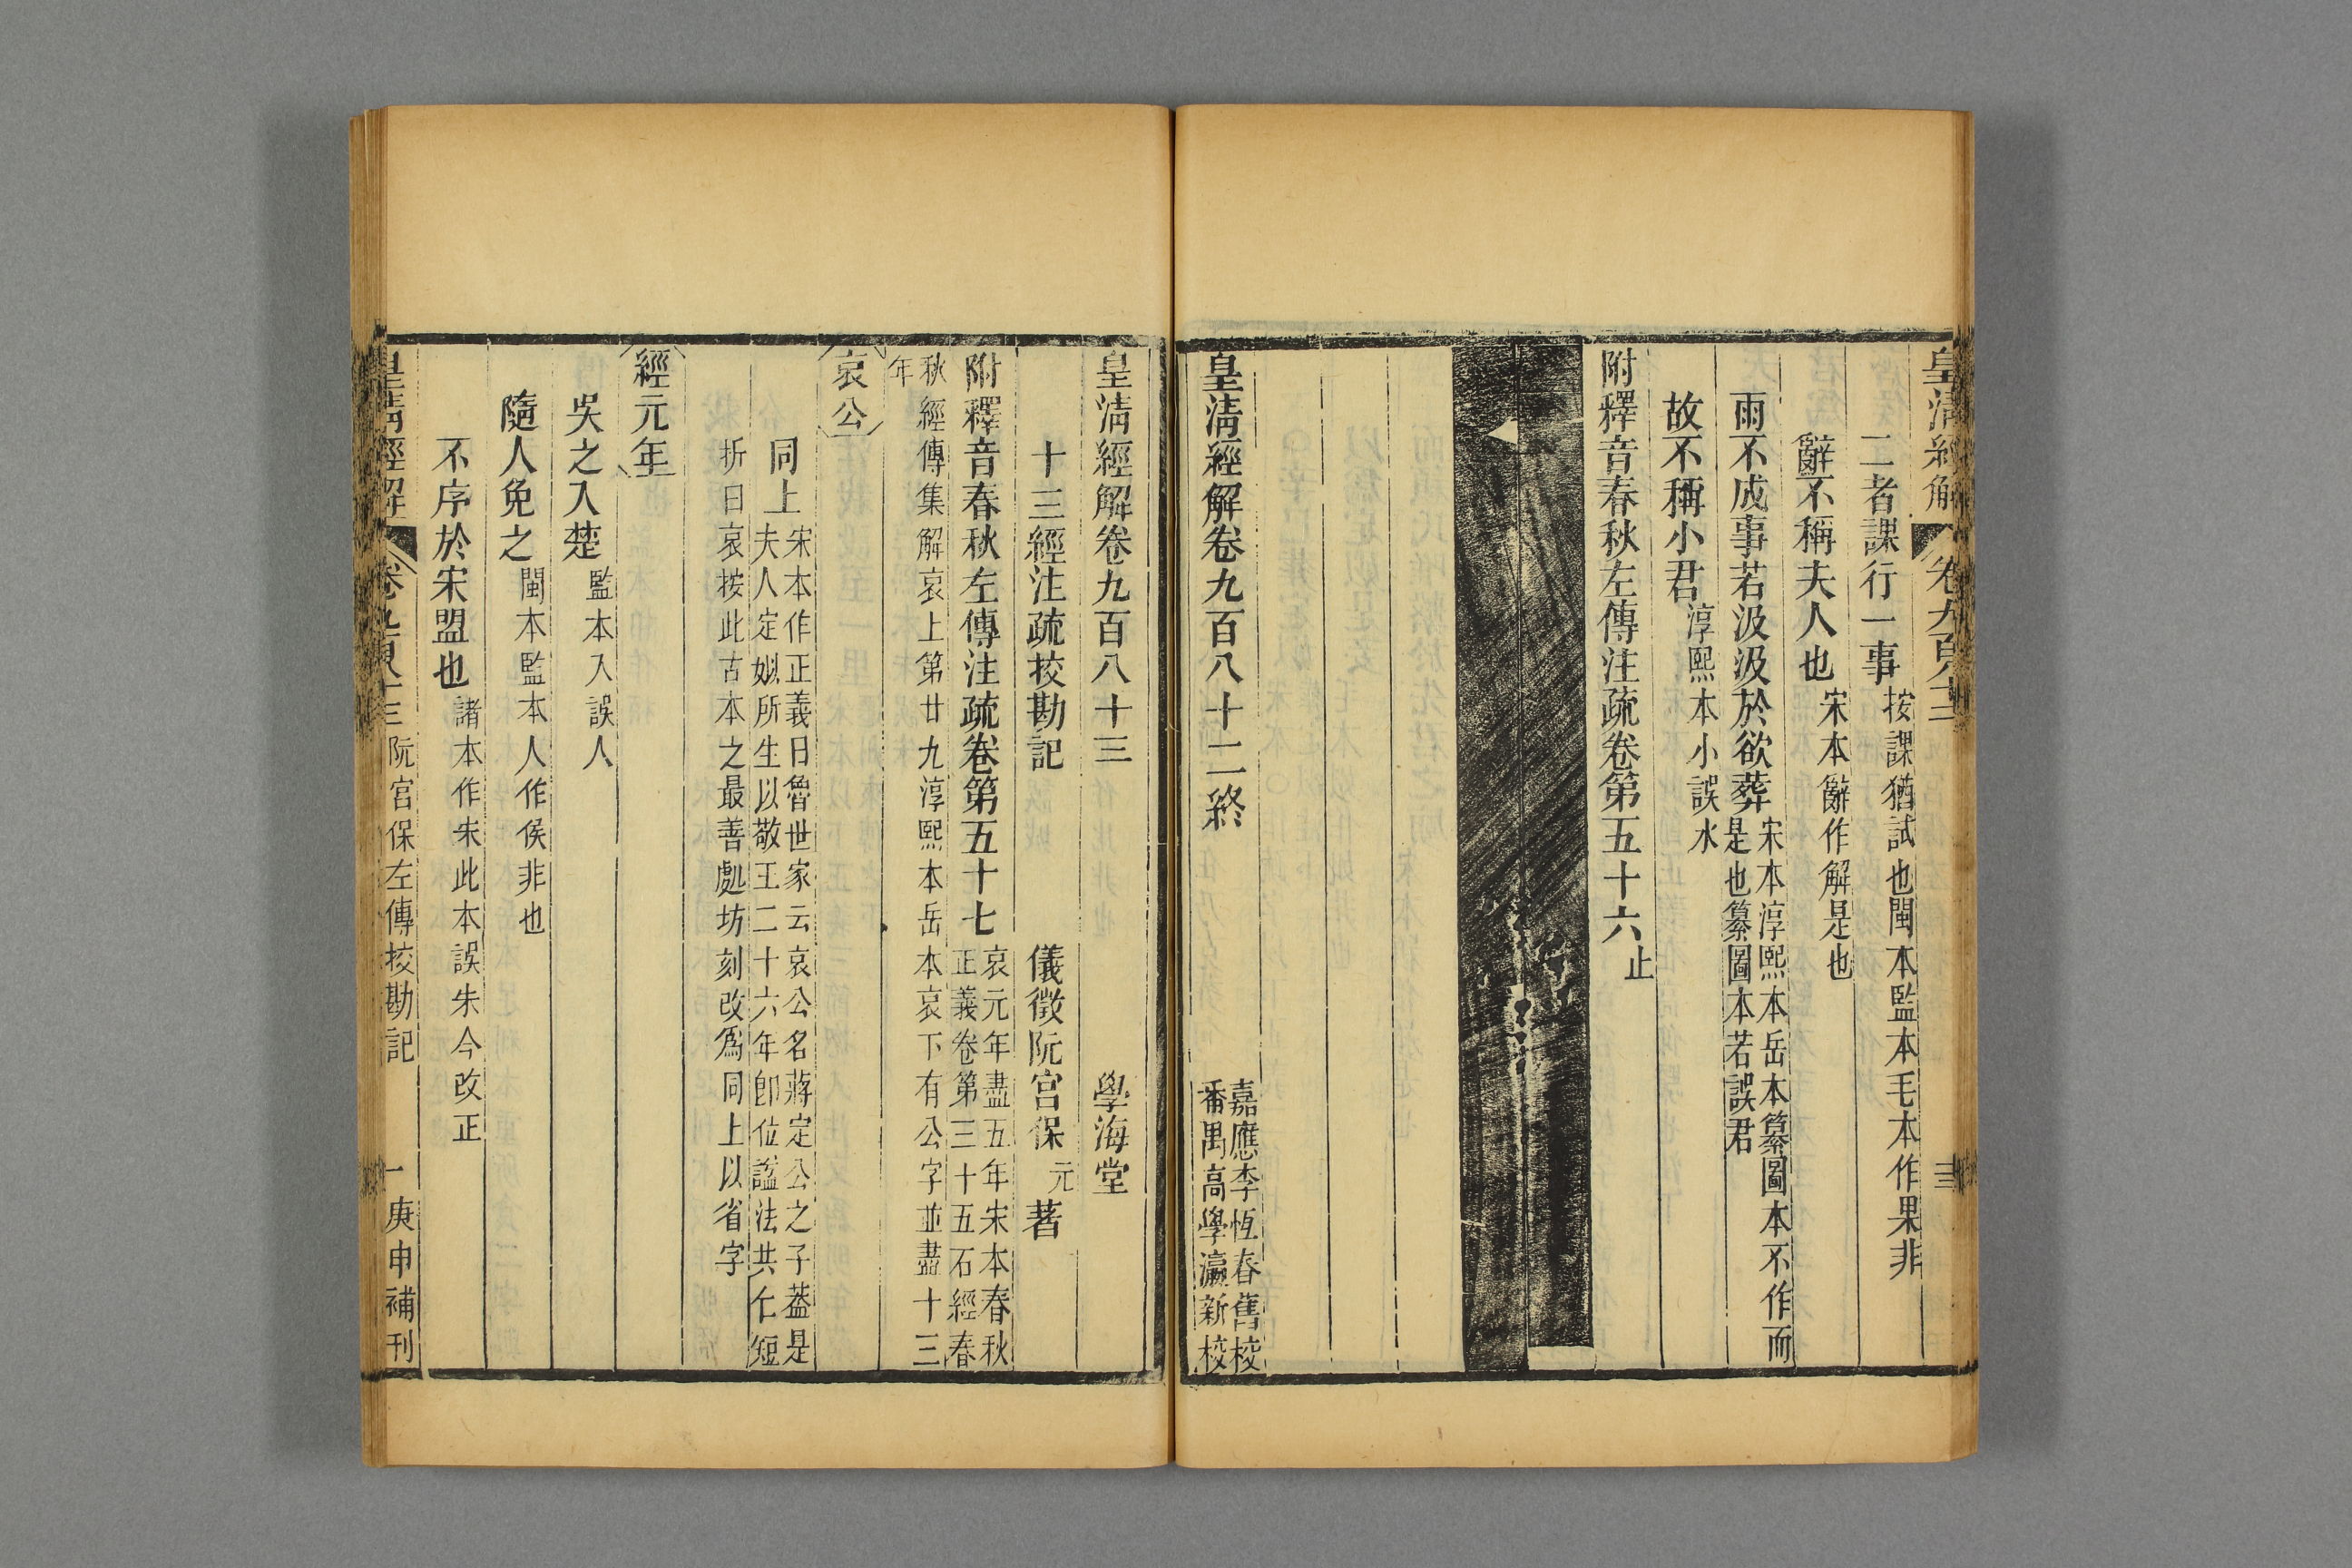 皇清經解 卷九百八十二
二者課行一事按課猶試也閩本監本毛本作果非
辭不稱夫人也宋本辭作解是也
雨不成事若汲汲於欲葬宋本淳熙本岳本纂圖本不作而
是也纂圖本若誤君
故不稱小君淳熙本小誤水
附釋音春秋左傳注疏卷第五十六止
皇清經解卷九百八十二終
嘉應李恆春舊校
番禺高學瀛新校
皇清經解卷九百八十三 學海堂
十三經注疏挍勘記 儀徵阮宮保元著
附釋音春秋左傳注疏卷第五十七哀元年盡五年宋本春秋
正義卷第三十五石經春
秋經傳集解哀上第廿九淳熙本岳本哀下有公字並盡十三
年
哀公
同上宋本作正義曰魯世家云哀公名蔣定公之子葢是
夫人定姒所生以敬王二十六年卽位諡法共仁短
折曰哀按此古本之最善處坊刻改爲同上以省字
經元年
吳之入楚監本入誤人
隨人免之閩本監本人作侯非也
不序於宋盟也諸本作宋此本誤朱今改正
皇清經解 卷九百八十三 阮宮保左傳挍勘記 一 庚申補刊